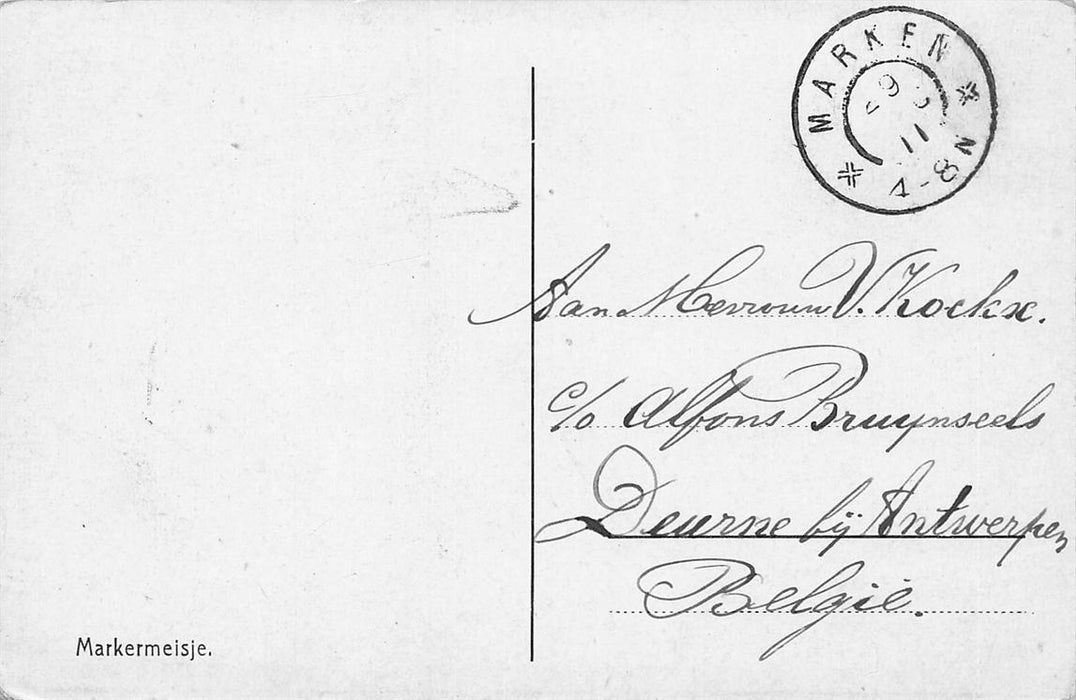 MARKEN
11
4-8 N
Aan Mevrouw V. Kockx.
c/o Alfons Bruynseels
Deurne bij Antwerpen
België.
Markermeisje.